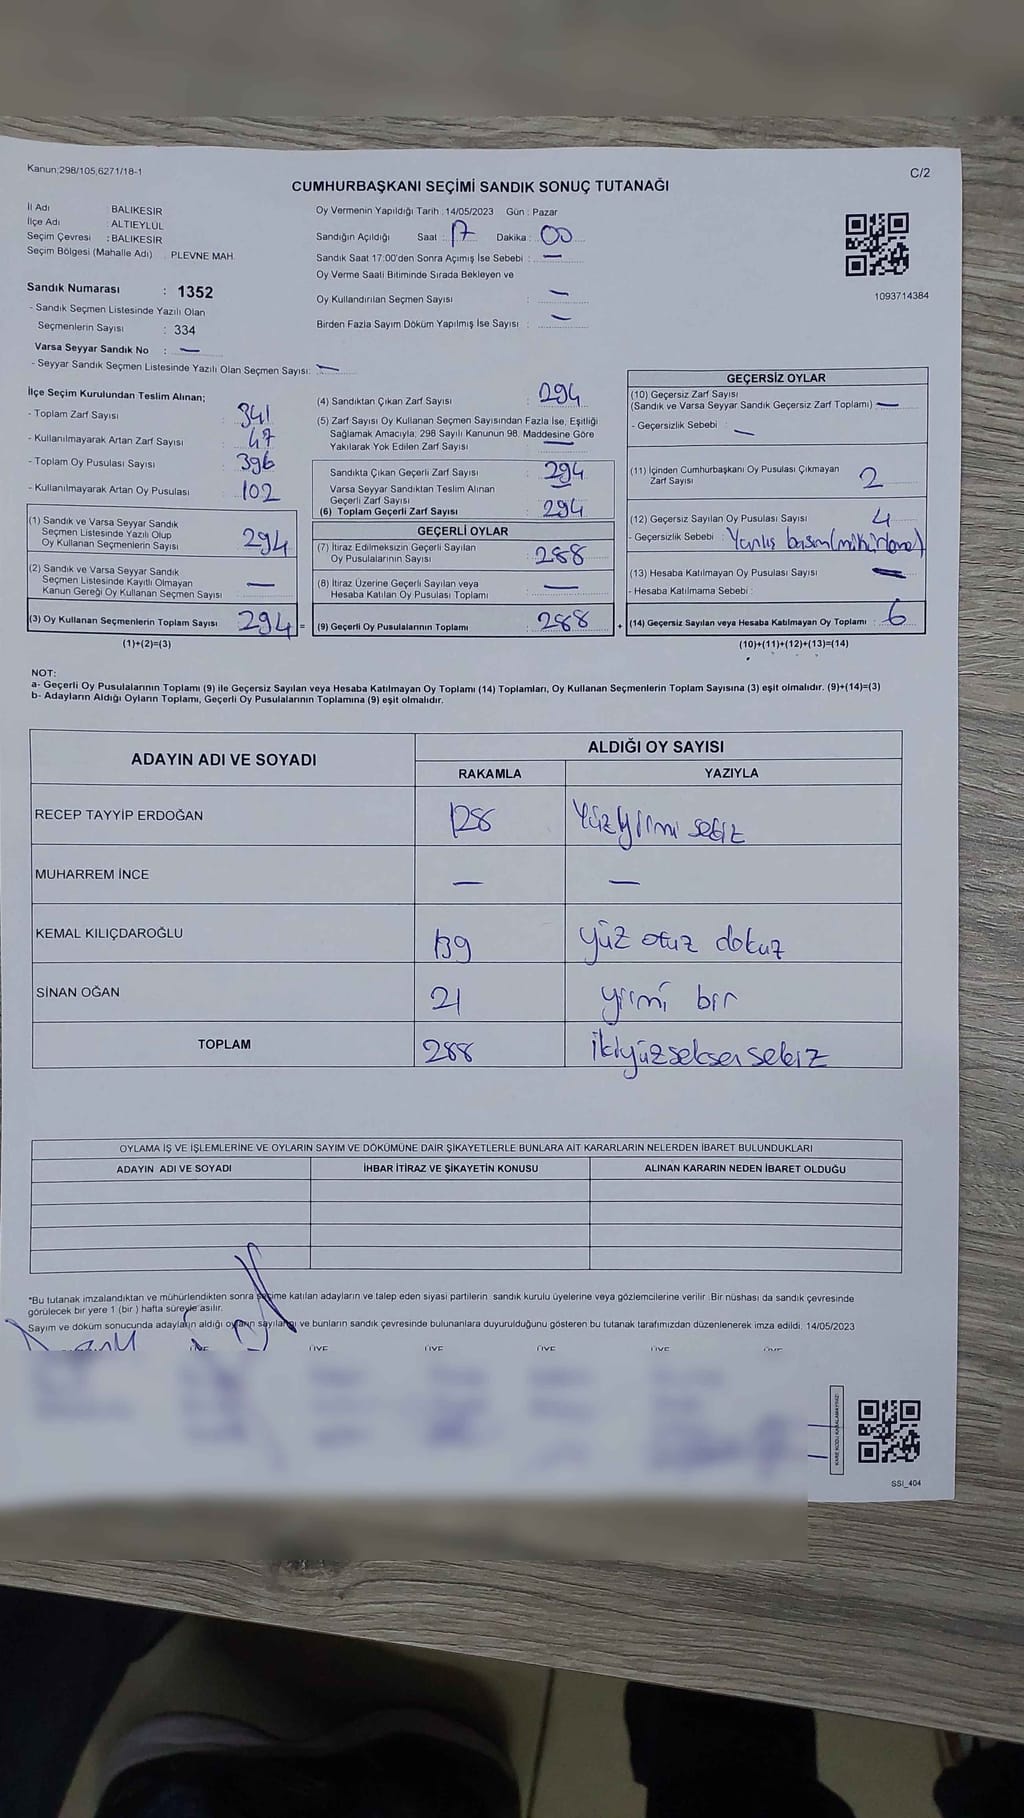 Kanun;298/105,6271/18-1
C/2
CUMHURBAŞKANI SEÇİMİ SANDIK SONUÇ TUTANAĞI
İl Adı : BALIKESİR
İlçe Adı : ALTIEYLÜL
Seçim Çevresi : BALIKESİR
Seçim Bölgesi (Mahalle Adı) : PLEVNE MAH.
Sandık Numarası : 1352
- Sandık Seçmen Listesinde Yazılı Olan
Seçmenlerin Sayısı : 334
Varsa Seyyar Sandık No : —
- Seyyar Sandık Seçmen Listesinde Yazılı Olan Seçmen Sayısı: —
Oy Vermenin Yapıldığı Tarih : 14/05/2023 Gün : Pazar
Sandığın Açıldığı Saat : 17 Dakika : 00
Sandık Saat 17:00'den Sonra Açımış İse Sebebi : —
Oy Verme Saati Bitiminde Sırada Bekleyen ve
Oy Kullandırılan Seçmen Sayısı : —
Birden Fazla Sayım Döküm Yapılmış İse Sayısı : —
1093714384
İlçe Seçim Kurulundan Teslim Alınan;
- Toplam Zarf Sayısı : 341
- Kullanılmayarak Artan Zarf Sayısı : 47
- Toplam Oy Pusulası Sayısı : 396
- Kullanılmayarak Artan Oy Pusulası : 102
(1) Sandık ve Varsa Seyyar Sandık
Seçmen Listesinde Yazılı Olup
Oy Kullanan Seçmenlerin Sayısı : 294
(2) Sandık ve Varsa Seyyar Sandık
Seçmen Listesinde Kayıtlı Olmayan
Kanun Gereği Oy Kullanan Seçmen Sayısı —
(3) Oy Kullanan Seçmenlerin Toplam Sayısı 294 =
(1)+(2)=(3)
(4) Sandıktan Çıkan Zarf Sayısı : 294
(5) Zarf Sayısı Oy Kullanan Seçmen Sayısından Fazla İse, Eşitliği
Sağlamak Amacıyla; 298 Sayılı Kanunun 98. Maddesine Göre
Yakılarak Yok Edilen Zarf Sayısı —
Sandıkta Çıkan Geçerli Zarf Sayısı : 294
Varsa Seyyar Sandıktan Teslim Alınan
Geçerli Zarf Sayısı : —
(6) Toplam Geçerli Zarf Sayısı : 294
GEÇERLİ OYLAR
(7) İtiraz Edilmeksizin Geçerli Sayılan
Oy Pusulalarının Sayısı : 288
(8) İtiraz Üzerine Geçerli Sayılan veya
Hesaba Katılan Oy Pusulası Toplamı : —
(9) Geçerli Oy Pusulalarının Toplamı : 288 +
GEÇERSİZ OYLAR
(10) Geçersiz Zarf Sayısı
(Sandık ve Varsa Seyyar Sandık Geçersiz Zarf Toplamı) —
- Geçersizlik Sebebi : —
(11) İçinden Cumhurbaşkanı Oy Pusulası Çıkmayan
Zarf Sayısı : 2
(12) Geçersiz Sayılan Oy Pusulası Sayısı : 4
- Geçersizlik Sebebi : Yanlış basım(mühürleme)
(13) Hesaba Katılmayan Oy Pusulası Sayısı : —
- Hesaba Katılmama Sebebi :
(14) Geçersiz Sayılan veya Hesaba Katılmayan Oy Toplamı : 6
(10)+(11)+(12)+(13)=(14)
NOT:
a- Geçerli Oy Pusulalarının Toplamı (9) ile Geçersiz Sayılan veya Hesaba Katılmayan Oy Toplamı (14) Toplamları, Oy Kullanan Seçmenlerin Toplam Sayısına (3) eşit olmalıdır. (9)+(14)=(3)
b- Adayların Aldığı Oyların Toplamı, Geçerli Oy Pusulalarının Toplamına (9) eşit olmalıdır.
ADAYIN ADI VE SOYADI
ALDIĞI OY SAYISI
RAKAMLA YAZIYLA
RECEP TAYYİP ERDOĞAN 128 Yüzyirmi sekiz
MUHARREM İNCE — —
KEMAL KILIÇDAROĞLU 139 yüz otuz dokuz
SİNAN OĞAN 21 yirmi bir
TOPLAM 288 ikiyüzseksen sekiz
OYLAMA İŞ VE İŞLEMLERİNE VE OYLARIN SAYIM VE DÖKÜMÜNE DAİR ŞİKAYETLERLE BUNLARA AİT KARARLARIN NELERDEN İBARET BULUNDUKLARI
ADAYIN ADI VE SOYADI İHBAR İTİRAZ VE ŞİKAYETİN KONUSU ALINAN KARARIN NEDEN İBARET OLDUĞU
*Bu tutanak imzalandıktan ve mühürlendikten sonra seçime katılan adayların ve talep eden siyasi partilerin sandık kurulu üyelerine veya gözlemcilerine verilir. Bir nüshası da sandık çevresinde
görülecek bir yere 1 (bir) hafta süreyle asılır.
Sayım ve döküm sonucunda adayların aldığı oyların sayılarını ve bunların sandık çevresinde bulunanlara duyurulduğunu gösteren bu tutanak tarafımızdan düzenlenerek imza edildi. 14/05/2023
ÜYE ÜYE ÜYE ÜYE ÜYE ÜYE
KARE KODU KARALAMAYINIZ!
SSI_404